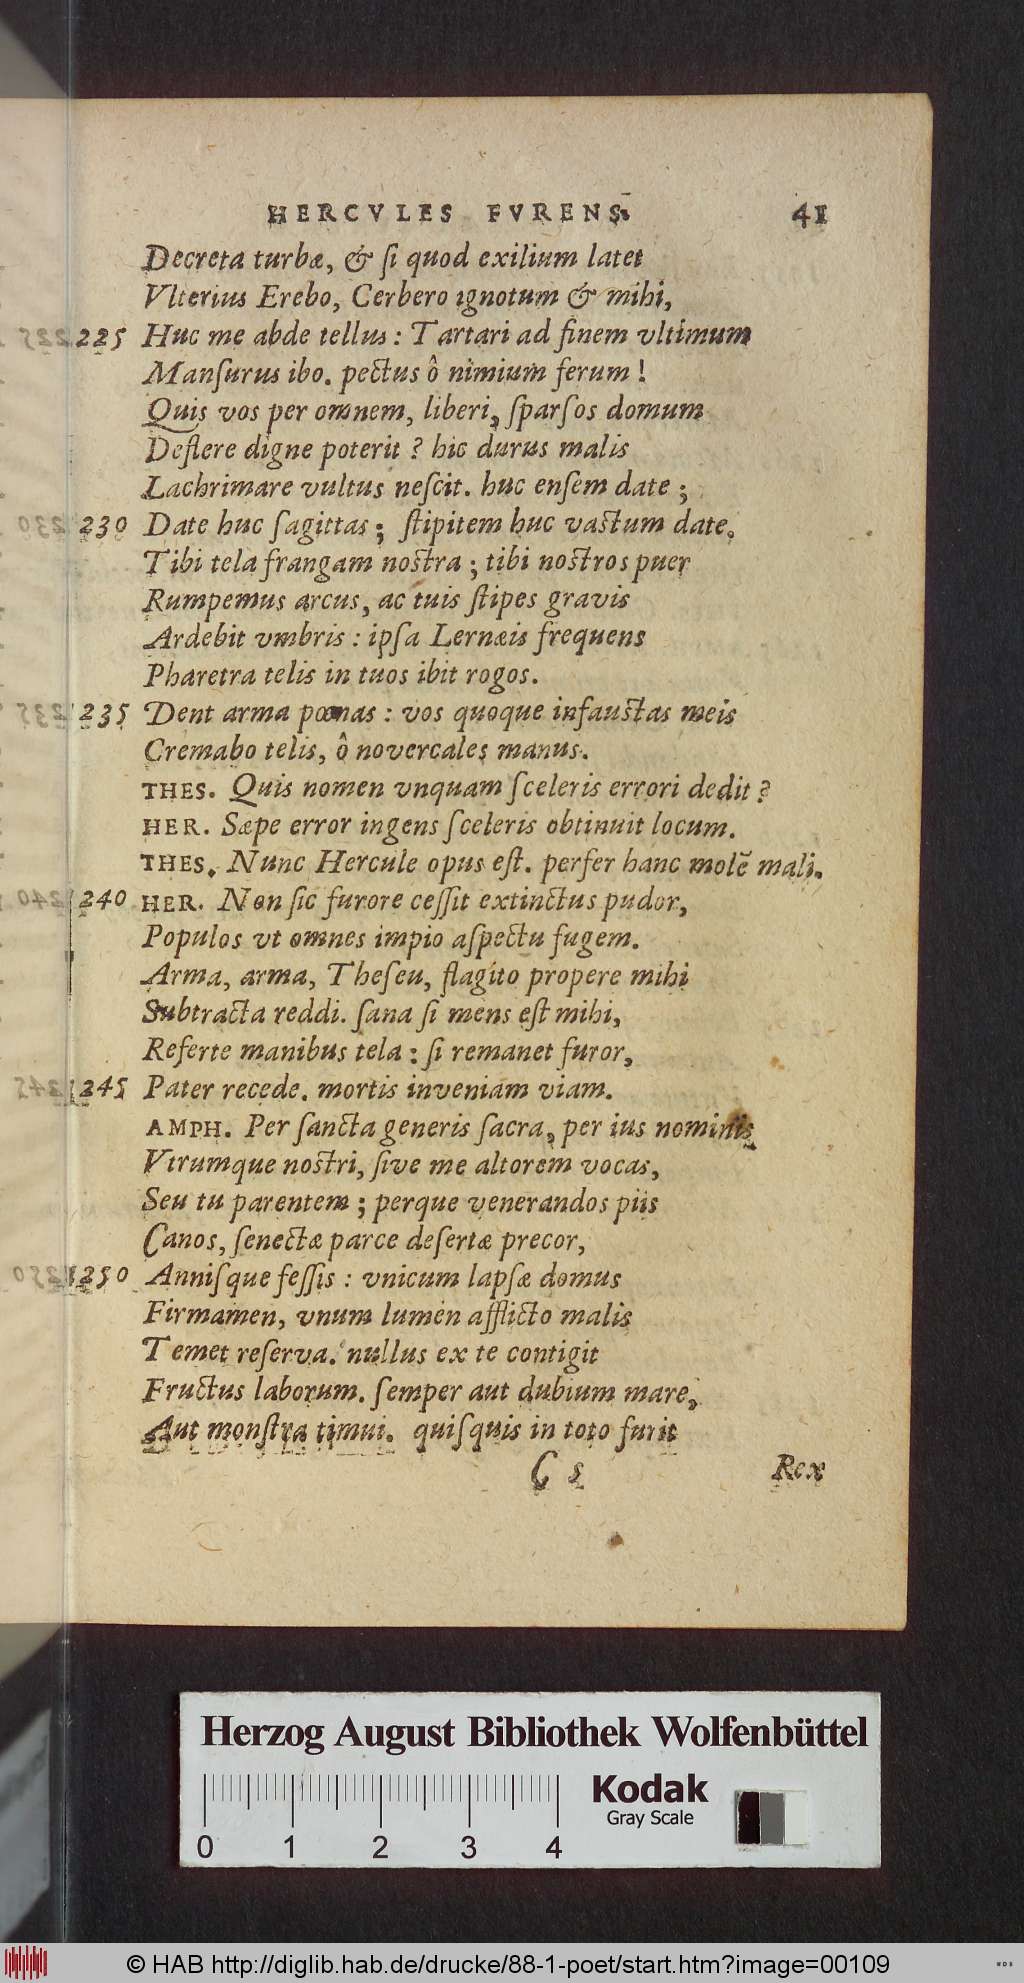 HERCVLES FVRENS. 41
Decreta turbæ, & ſi quod exilium latet
Vlterius Erebo, Cerbero ignotum & mihi,
225 Huc me abde tellus : Tartari ad finem vltimum
Manſurus ibo. pectus ô nimium ferum !
Quis vos per omnem, liberi, ſparſos domum
Deflere digne poterit ? hic durus malis
Lachrimare vultus neſcit. huc enſem date ;
230 Date huc ſagittas ; ſtipitem huc vastum date.
Tibi tela frangam nostra ; tibi nostros puer
Rumpemus arcus, ac tuis ſtipes gravis
Ardebit vmbris : ipſa Lernæis frequens
Pharetra telis in tuos ibit rogos.
235 Dent arma pœnas : vos quoque infaustas meis
Cremabo telis, ô novercales manus.
THES. Quis nomen vnquam ſceleris errori dedit ?
HER. Sæpe error ingens ſceleris obtinuit locum.
THES. Nunc Hercule opus eſt. perfer hanc molē mali.
240 HER. Non ſic furore ceſſit extinctus pudor,
Populos vt omnes impio aſpectu fugem.
Arma, arma, Theſeu, flagito propere mihi
Subtracta reddi. ſana ſi mens eſt mihi,
Referte manibus tela : ſi remanet furor,
245 Pater recede. mortis inveniam viam.
AMPH. Per ſancta generis ſacra, per ius nominis
Vtrumque nostri, ſive me altorem vocas,
Seu tu parentem ; perque venerandos piis
Canos, ſenectæ parce deſertæ precor,
250 Anniſque feſſis : vnicum lapſæ domus
Firmamen, vnum lumen afflicto malis
Temet reſerva. nullus ex te contigit
Fructus laborum. ſemper aut dubium mare,
Aut monſtra timui. quiſquis in toto furit
C 5 Rex
Herzog August Bibliothek Wolfenbüttel
0 1 2 3 4
Kodak
Gray Scale
© HAB http://diglib.hab.de/drucke/88-1-poet/start.htm?image=00109